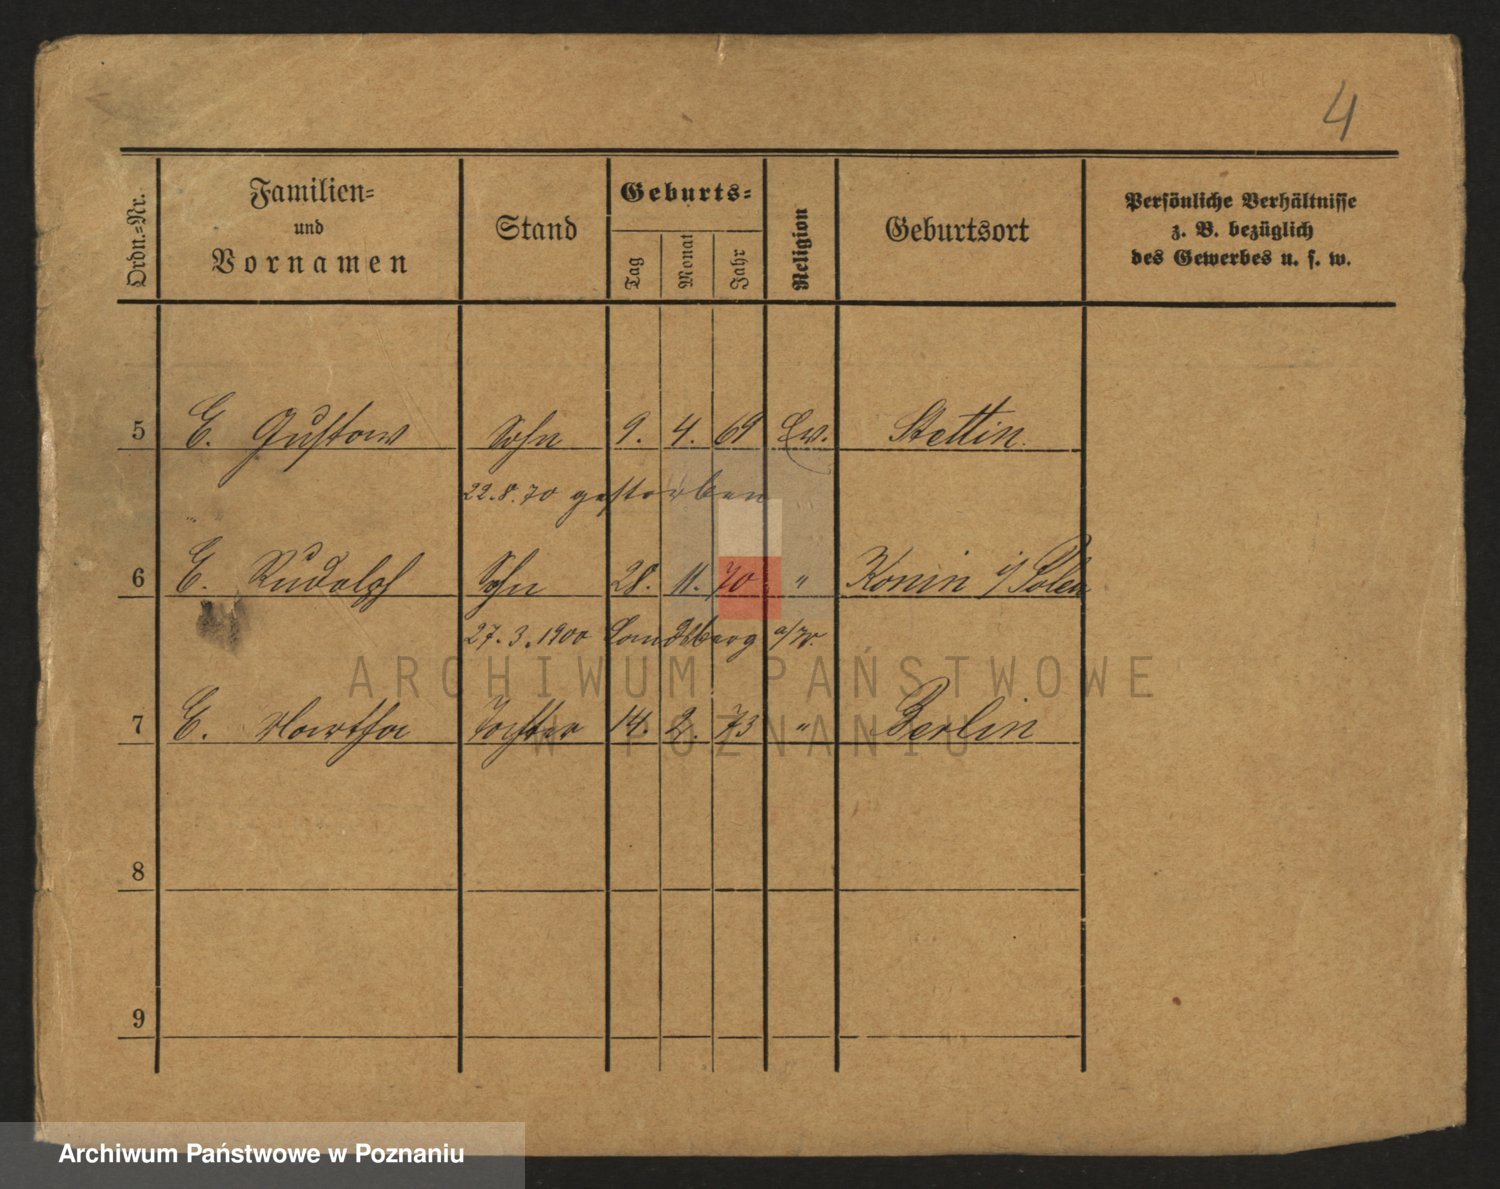 4
Ordn.=Nr.
Familien=
und
Vornamen
Stand
Geburts=
Tag
Monat
Jahr
Religion
Geburtsort
Persönliche Verhältnisse
z. B. bezüglich
des Gewerbes u. s. w.
5 E. Gustav Sohn 9. 4. 69 Ev. Stettin.
22.8.70 gestorben
6 E. Rudolph Sohn 28. 11. 70 " Konin i/Polen
27.3.1900 Landsberg a/W.
7 E. Martha Tochter 14. 2. 73 " Berlin
8
9
ARCHIWUM PAŃSTWOWE
W POZNANIU
Archiwum Państwowe w Poznaniu